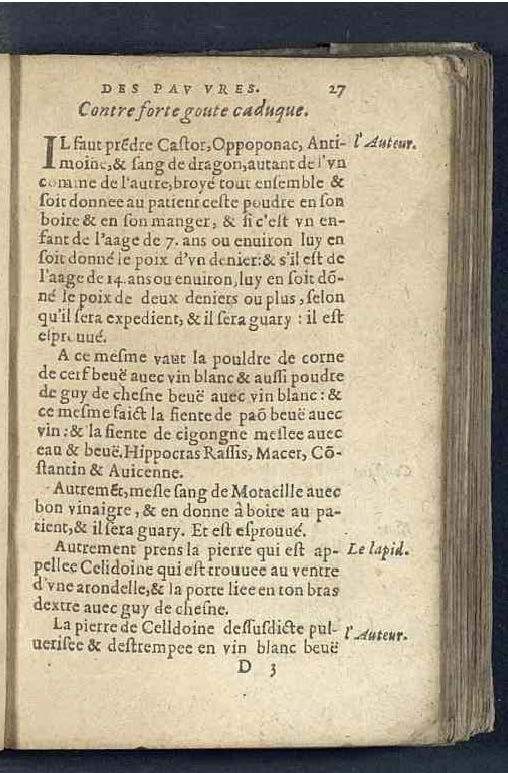 DES PAVVRES. 27
Contre forte goute caduque.
IL faut prẽdre Castor, Oppoponac, Anti- l'Auteur.
moine, & sang de dragon, autant de l'vn
comme de l'autre, broyé tout ensemble &
soit donnee au patient ceste poudre en son
boire & en son manger, & si c'est vn en-
fant de l'aage de 7. ans ou enuiron luy en
soit donné le poix d'vn denier: & s'il est de
l'aage de 14. ans ou enuiron, luy en soit dõ-
né le poix de deux deniers ou plus, selon
qu'il sera expedient, & il sera guary : il est
esprouué.
A ce mesme vaut la pouldre de corne
de cerf beuë auec vin blanc & aussi poudre
de guy de chesne beuë auec vin blanc: &
ce mesme faict la fiente de paõ beuë auec
vin: & la fiente de cigongne meslee auec
eau & beuë. Hippocras Rassis, Macer, Cõ-
stantin & Auicenne.
Autremẽt, mesle sang de Motacille auec
bon vinaigre, & en donne à boire au pa-
tient, & il sera guary. Et est esprouué.
Autrement prens la pierre qui est ap- Le lapid.
pellee Celidoine qui est trouuee au ventre
d'vne arondelle, & la porte liee en ton bras
dextre auec guy de chesne.
La pierre de Celldoine dessusdicte pul- l'Auteur.
uerisee & destrempee en vin blanc beuë
D 3